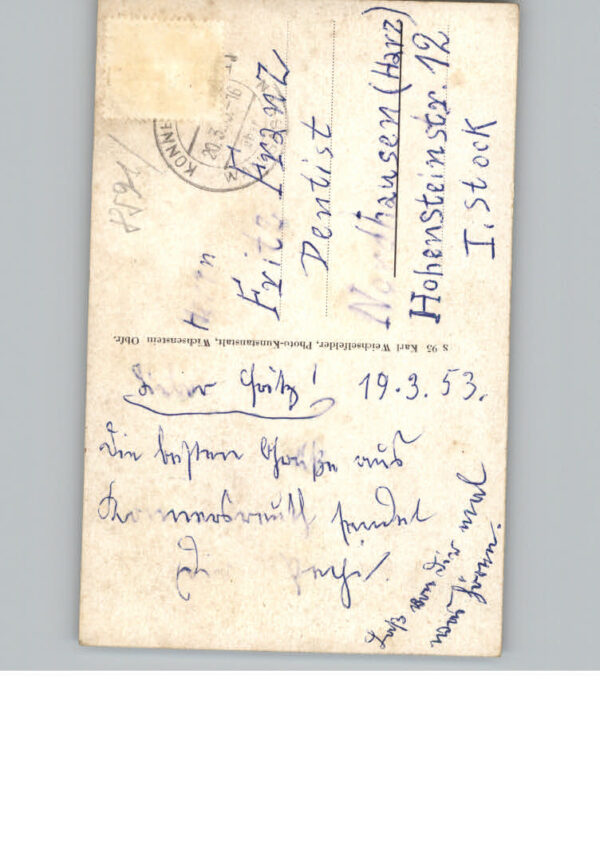 Lieber Fritz! 19.3.53.
Die besten Grüße aus
Konnersreuth sendet
Dir
Laß von Dir mal
was hören.
S 95 Karl Weichselfelder, Photo-Kunstanstalt, Wichsenstein Obfr.
Herrn
Fritz Franz
Dentist
Nordhausen (Harz)
Hohensteinstr. 12
I. Stock
KONNE
20.3.